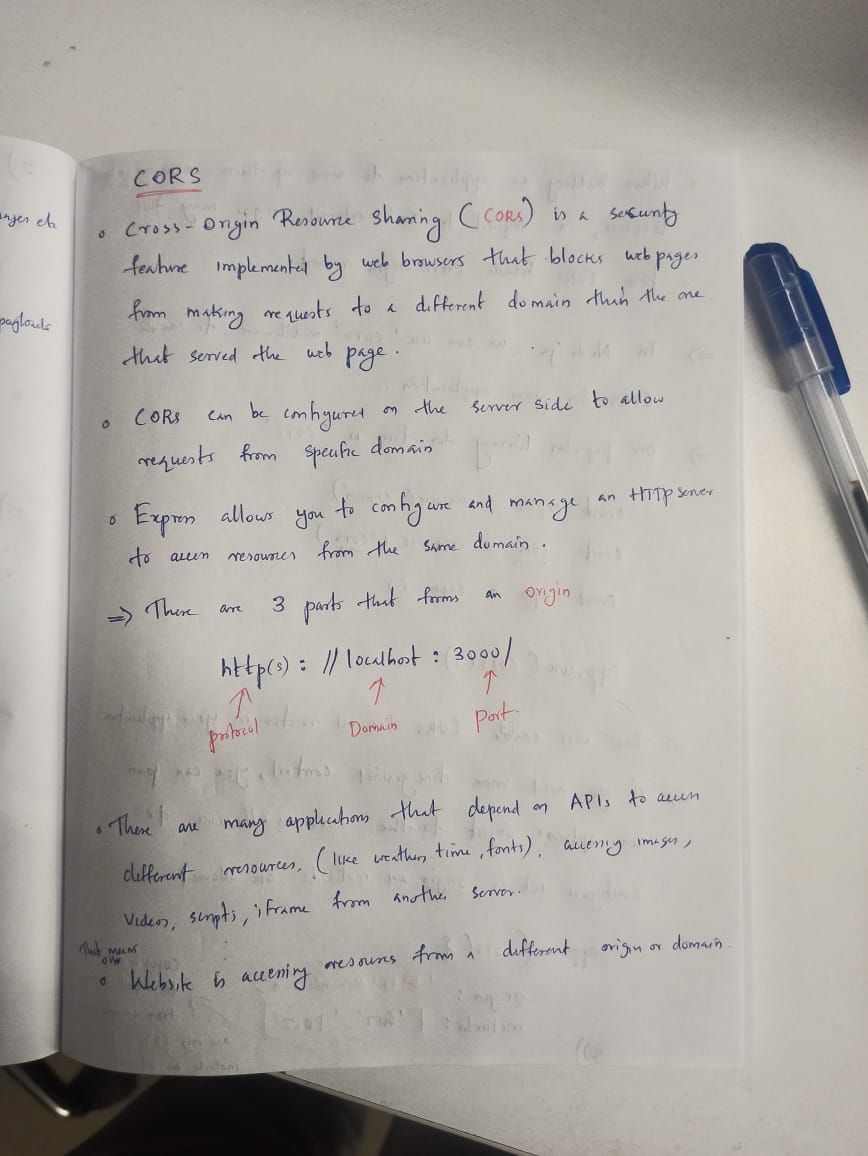 CORS
• Cross-Origin Resource Sharing (CORS) is a security
feature implemented by web browsers that blocks web pages
from making requests to a different domain than the one
that served the web page.
• CORs can be configured on the server side to allow
requests from specific domain
• Express allows you to configure and manage an HTTP server
to access resources from the same domain.
⇒ There are 3 parts that forms an origin
http(s) : // localhost : 3000/
protocol Domain port
• There are many applications that depend on APIs to access
different resources, (like weather, time, fonts), accessing images,
Videos, scripts, iframe from another server.
That means
our
• Website is accessing resources from a different origin or domain.
payloads